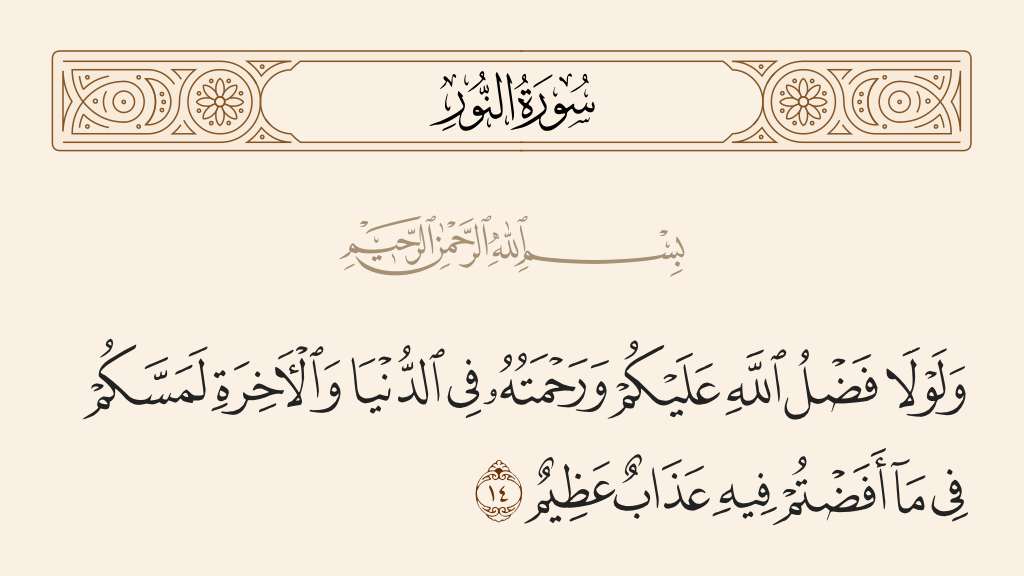 سُورَةُ النُّورِ
بِسْمِ ٱللَّهِ ٱلرَّحْمَٰنِ ٱلرَّحِيمِ
وَلَوْلَا فَضْلُ ٱللَّهِ عَلَيْكُمْ وَرَحْمَتُهُۥ فِى ٱلدُّنْيَا وَٱلْءَاخِرَةِ لَمَسَّكُمْ
فِى مَآ أَفَضْتُمْ فِيهِ عَذَابٌ عَظِيمٌ ١٤